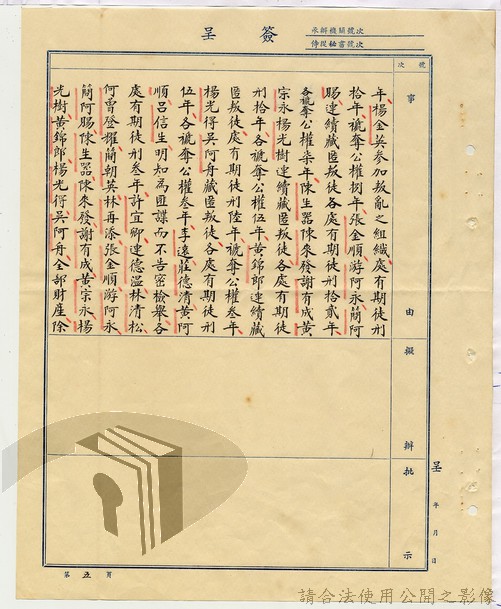 簽呈
承辦機關號次
侍從秘書號次
號次
事由
擬辦
批示
呈 年 月 日
年楊金英參加叛亂之組織處有期徒刑
拾年褫奪公權捌年張金順游阿永簡阿
賜連續藏匿叛徒各處有期徒刑拾貳年
各褫奪公權柒年陳生器陳來發謝有成黃
宗永楊光樹連續藏匿叛徒各處有期徒
刑拾年各褫奪公權伍年黃錦郎連續藏
匿叛徒處有期徒刑陸年褫奪公權叁年
楊光得吳阿舟藏匿叛徒各處有期徒刑
伍年各褫奪公權叁年李遠莊德清黃阿
順呂信生明知為匪諜而不告密檢舉各
處有期徒刑叁年許宜卿連德溫林清松
何雪登耀簡朝英林再添張金順游阿永
簡阿賜陳生器陳來發謝有成黃宗永楊
光樹黃錦郎楊光得吳阿舟全部財產除
第五頁
請合法使用公開之影像